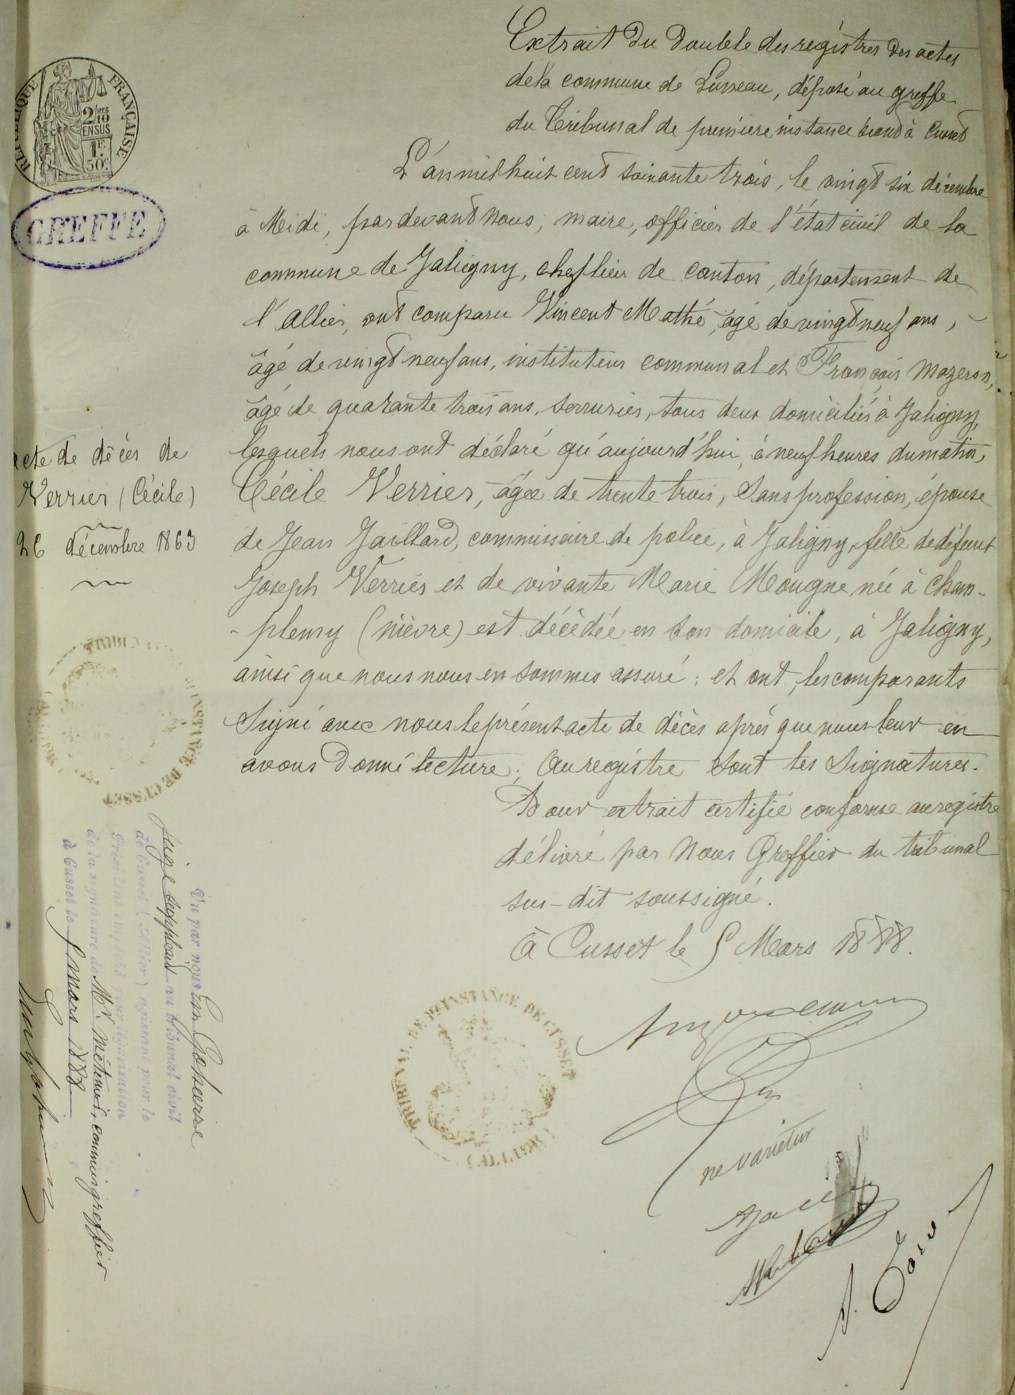 Extrait du double des registres des actes
de la commune de Luneau, déposé au greffe
du Tribunal de première instance séant à Cusset
L'an mil huit cent soixante trois, le vingt six décembre
à Midi, par devant nous, maire, officier de l'état civil de la
commune de Jaligny, chef lieu de canton, département de
l'Allier, ont comparu Vincent Mathé, âgé de vingt neuf ans,
âgé de vingt neuf ans, instituteur communal et François Mazeron,
âgé de quarante trois ans, serrurier, tous deux domiciliés à Jaligny,
lesquels nous ont déclaré qu'aujourd'hui, à neuf heures du matin,
Cécile Verrier, âgée de trente trois, sans profession, épouse
de Jean Jaillard, commissaire de police, à Jaligny, fille de défunt
Joseph Verrier et de vivante Marie Mougne, née à Cham-
- plemy (Nièvre) est décédée en son domicile, à Jaligny,
ainsi que nous nous en sommes assuré ; et ont, les comparants
signé avec nous le présent acte de décès après que nous leur en
avons donné lecture ; Au registre sont les signatures.
Pour extrait certifié conforme au registre
délivré par nous Greffier du tribunal
sus-dit soussigné.
à Cusset le 5 Mars 1888.
ne varietur
acte de décès de
Verrier (Cécile)
26 décembre 1863
RÉPUBLIQUE FRANÇAISE
2/10 EN SUS
1F 50C
GREFFE
TRIBUNAL DE 1ÈRE INSTANCE DE CUSSET
(ALLIER)
INSTANCE DE CUSSET
Vu par nous
juge suppléant au tribunal civil
de Cusset (Allier) agissant pour le
de la signature de Mr. Méténier, commis greffier
à Cusset le 5 mars 1888